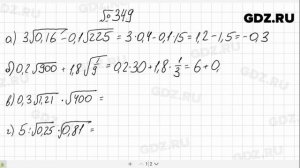 №349
GDZ.RU
а) 3√0,16 - 0,1√225 = 3·0,4 - 0,1·15 = 1,2 - 1,5 = -0,3
б) 0,2√900 + 1,8√1/9 = 0,2·30 + 1,8·1/3 = 6 + 0,
в) 0,3√1,21 · √400 =
г) 5:√0,25 · √0,81 =
GDZ.RU